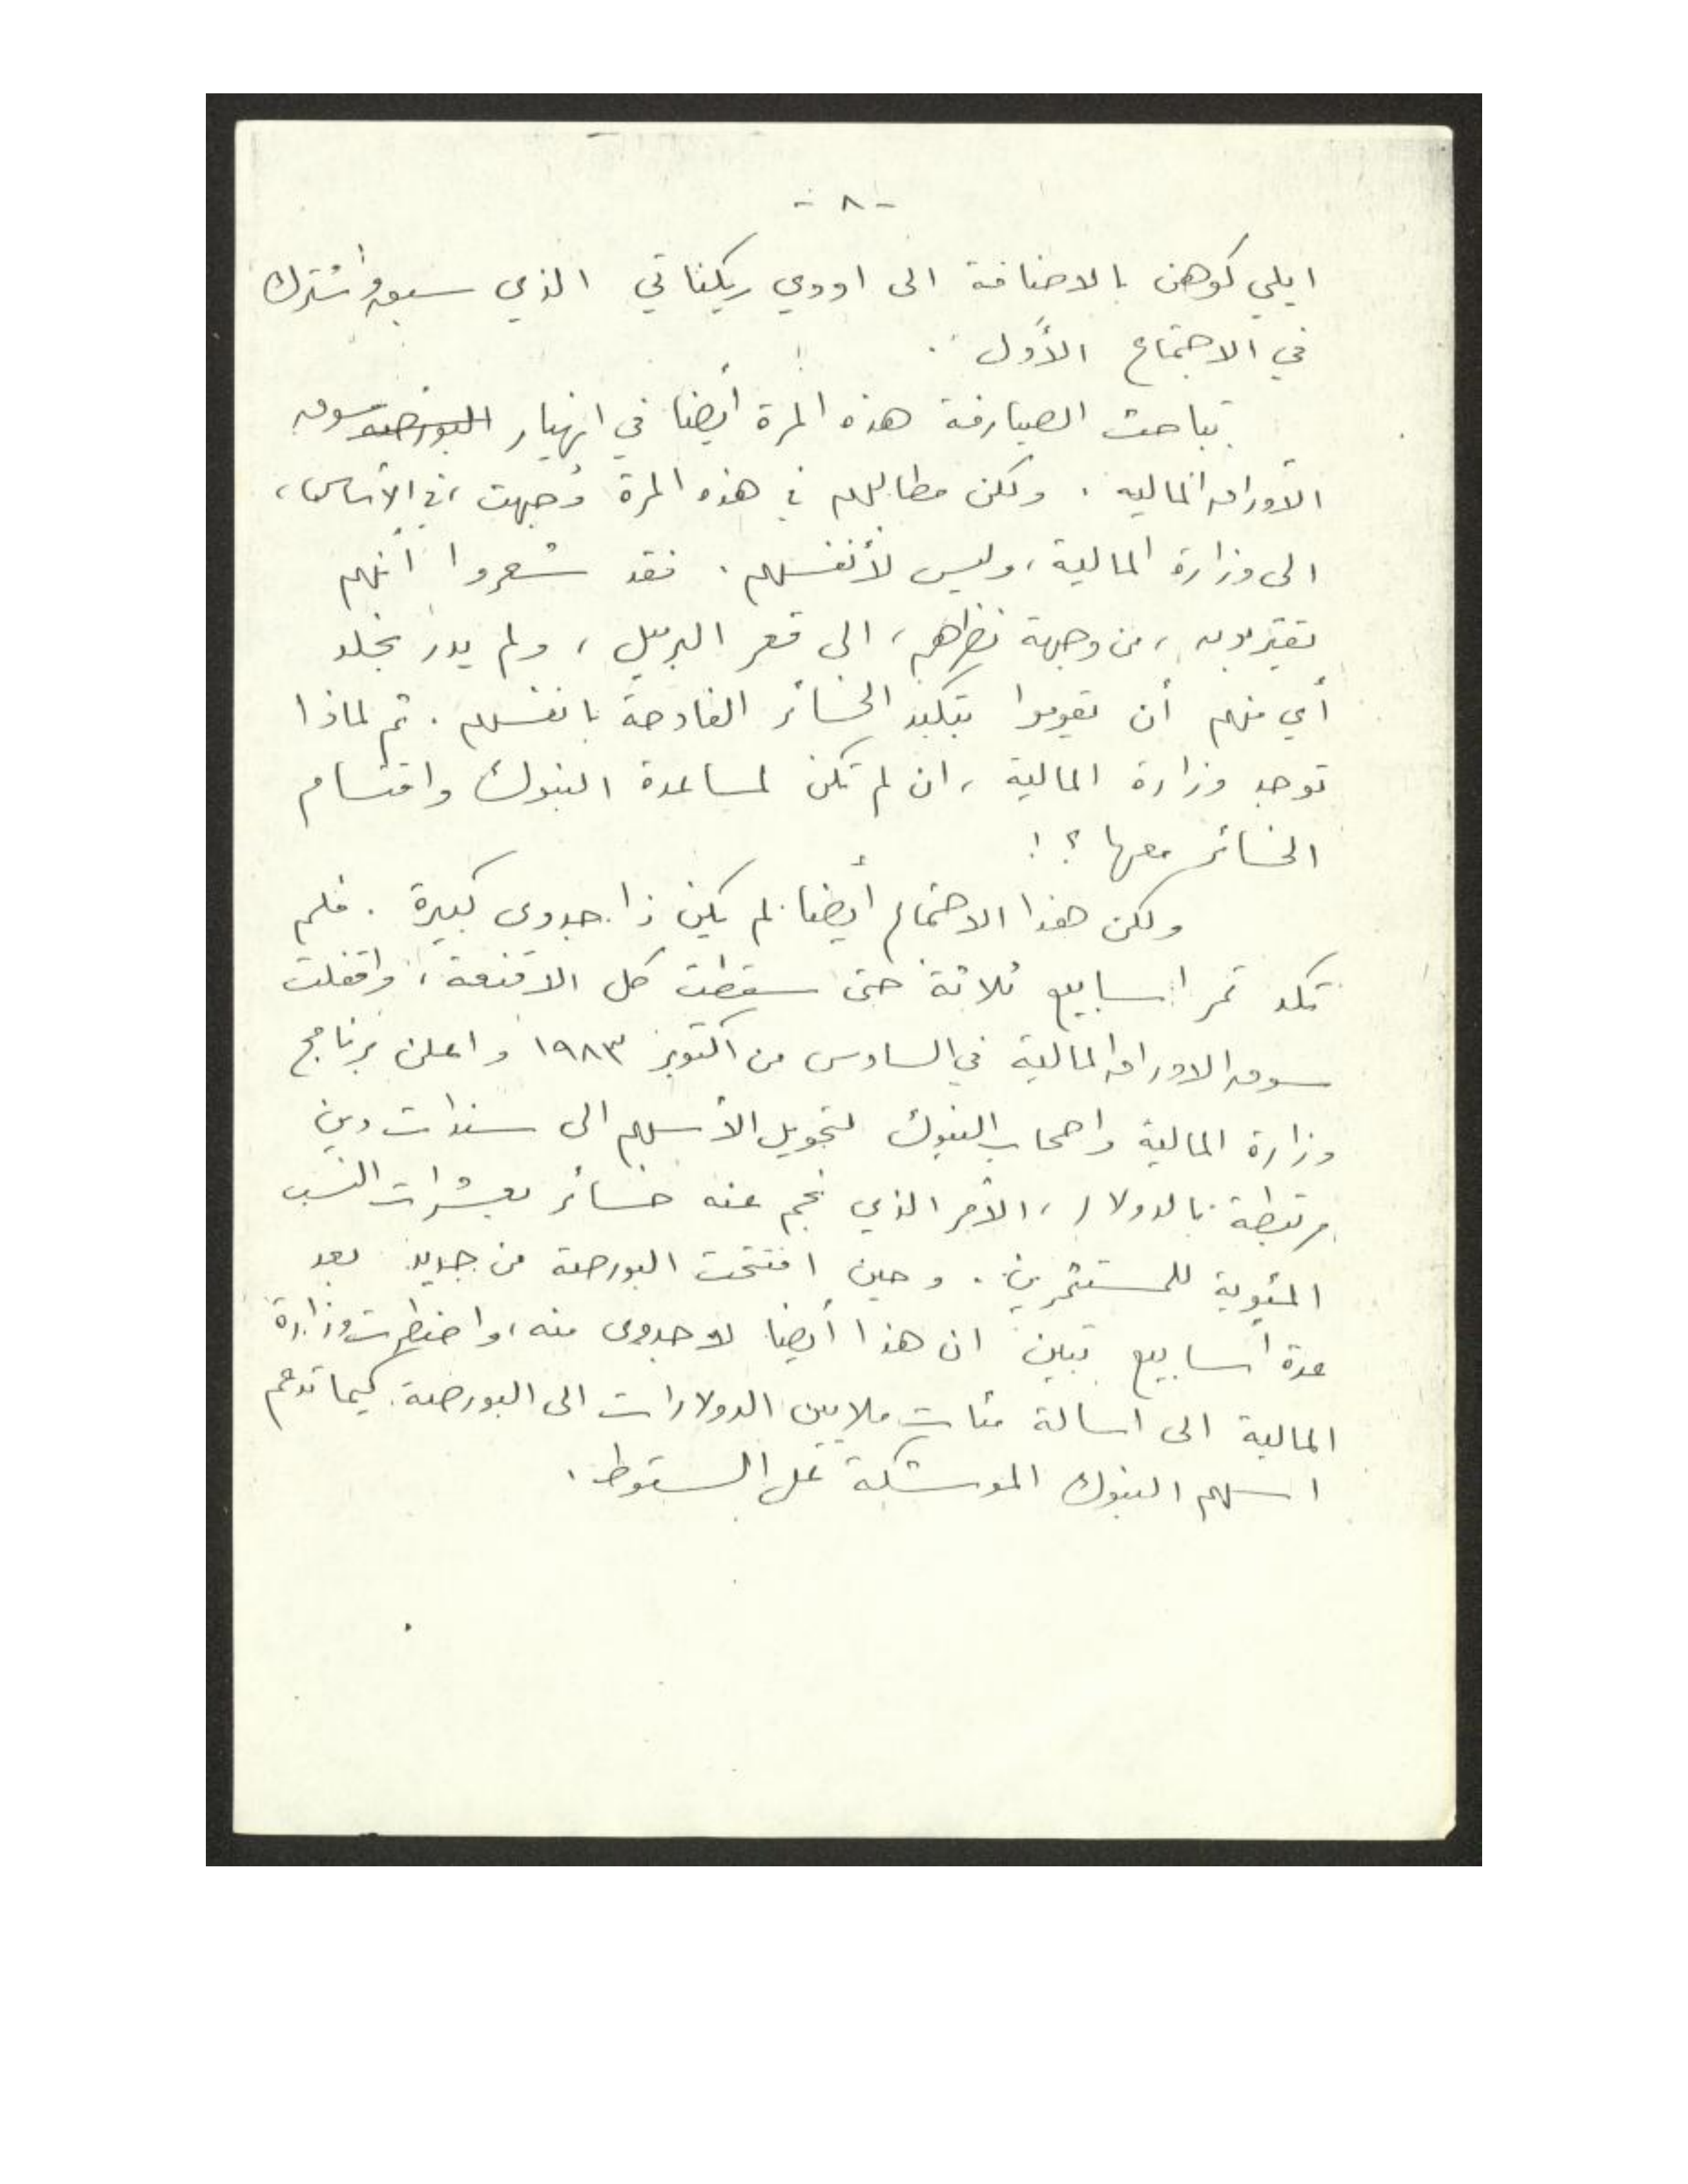 - ٨ -
ايلي كوهن بالاضافة الى اودي ريكناتي الذي سبق واشترك
في الاجتماع الأول.
تباحث الصيارفة هذه المرة أيضا في انهيار البورصة سوق
الأوراق المالية. ولكن مطالبهم في هذه المرة وُجهت، في الأساس،
الى وزارة المالية، وليس لأنفسهم. فقد شعروا أنهم
يقتربون، من وجهة نظرهم، الى قعر البرميل، ولم يدر بخلد
أي منهم أن يقوموا بتكبد الخسائر الفادحة بانفسهم. ثم لماذا
توجد وزارة المالية، ان لم تكن لمساعدة البنوك واقتسام
الخسائر معها؟!
ولكن هذا الاجتماع أيضا لم يكن ذا جدوى كبيرة. فلم
تكد تمر اسابيع ثلاثة حتى سقطت كل الاقنعة، واقفلت
سوق الاوراق المالية في السادس من اكتوبر ١٩٨٣ واعلن برنامج
وزارة المالية واصحاب البنوك لتحويل الأسهم الى سندات دين
مرتبطة بالدولار، الأمر الذي نجم عنه خسائر بعشرات النسب
المئوية للمستثمرين. وحين افتتحت البورصة من جديد بعد
عدة أسابيع تبين ان هذا أيضا لا جدوى منه، واضطرت وزارة
المالية الى اسالة مئات ملايين الدولارات الى البورصة كيما تدعم
اسهم البنوك الموشكة على السقوط.